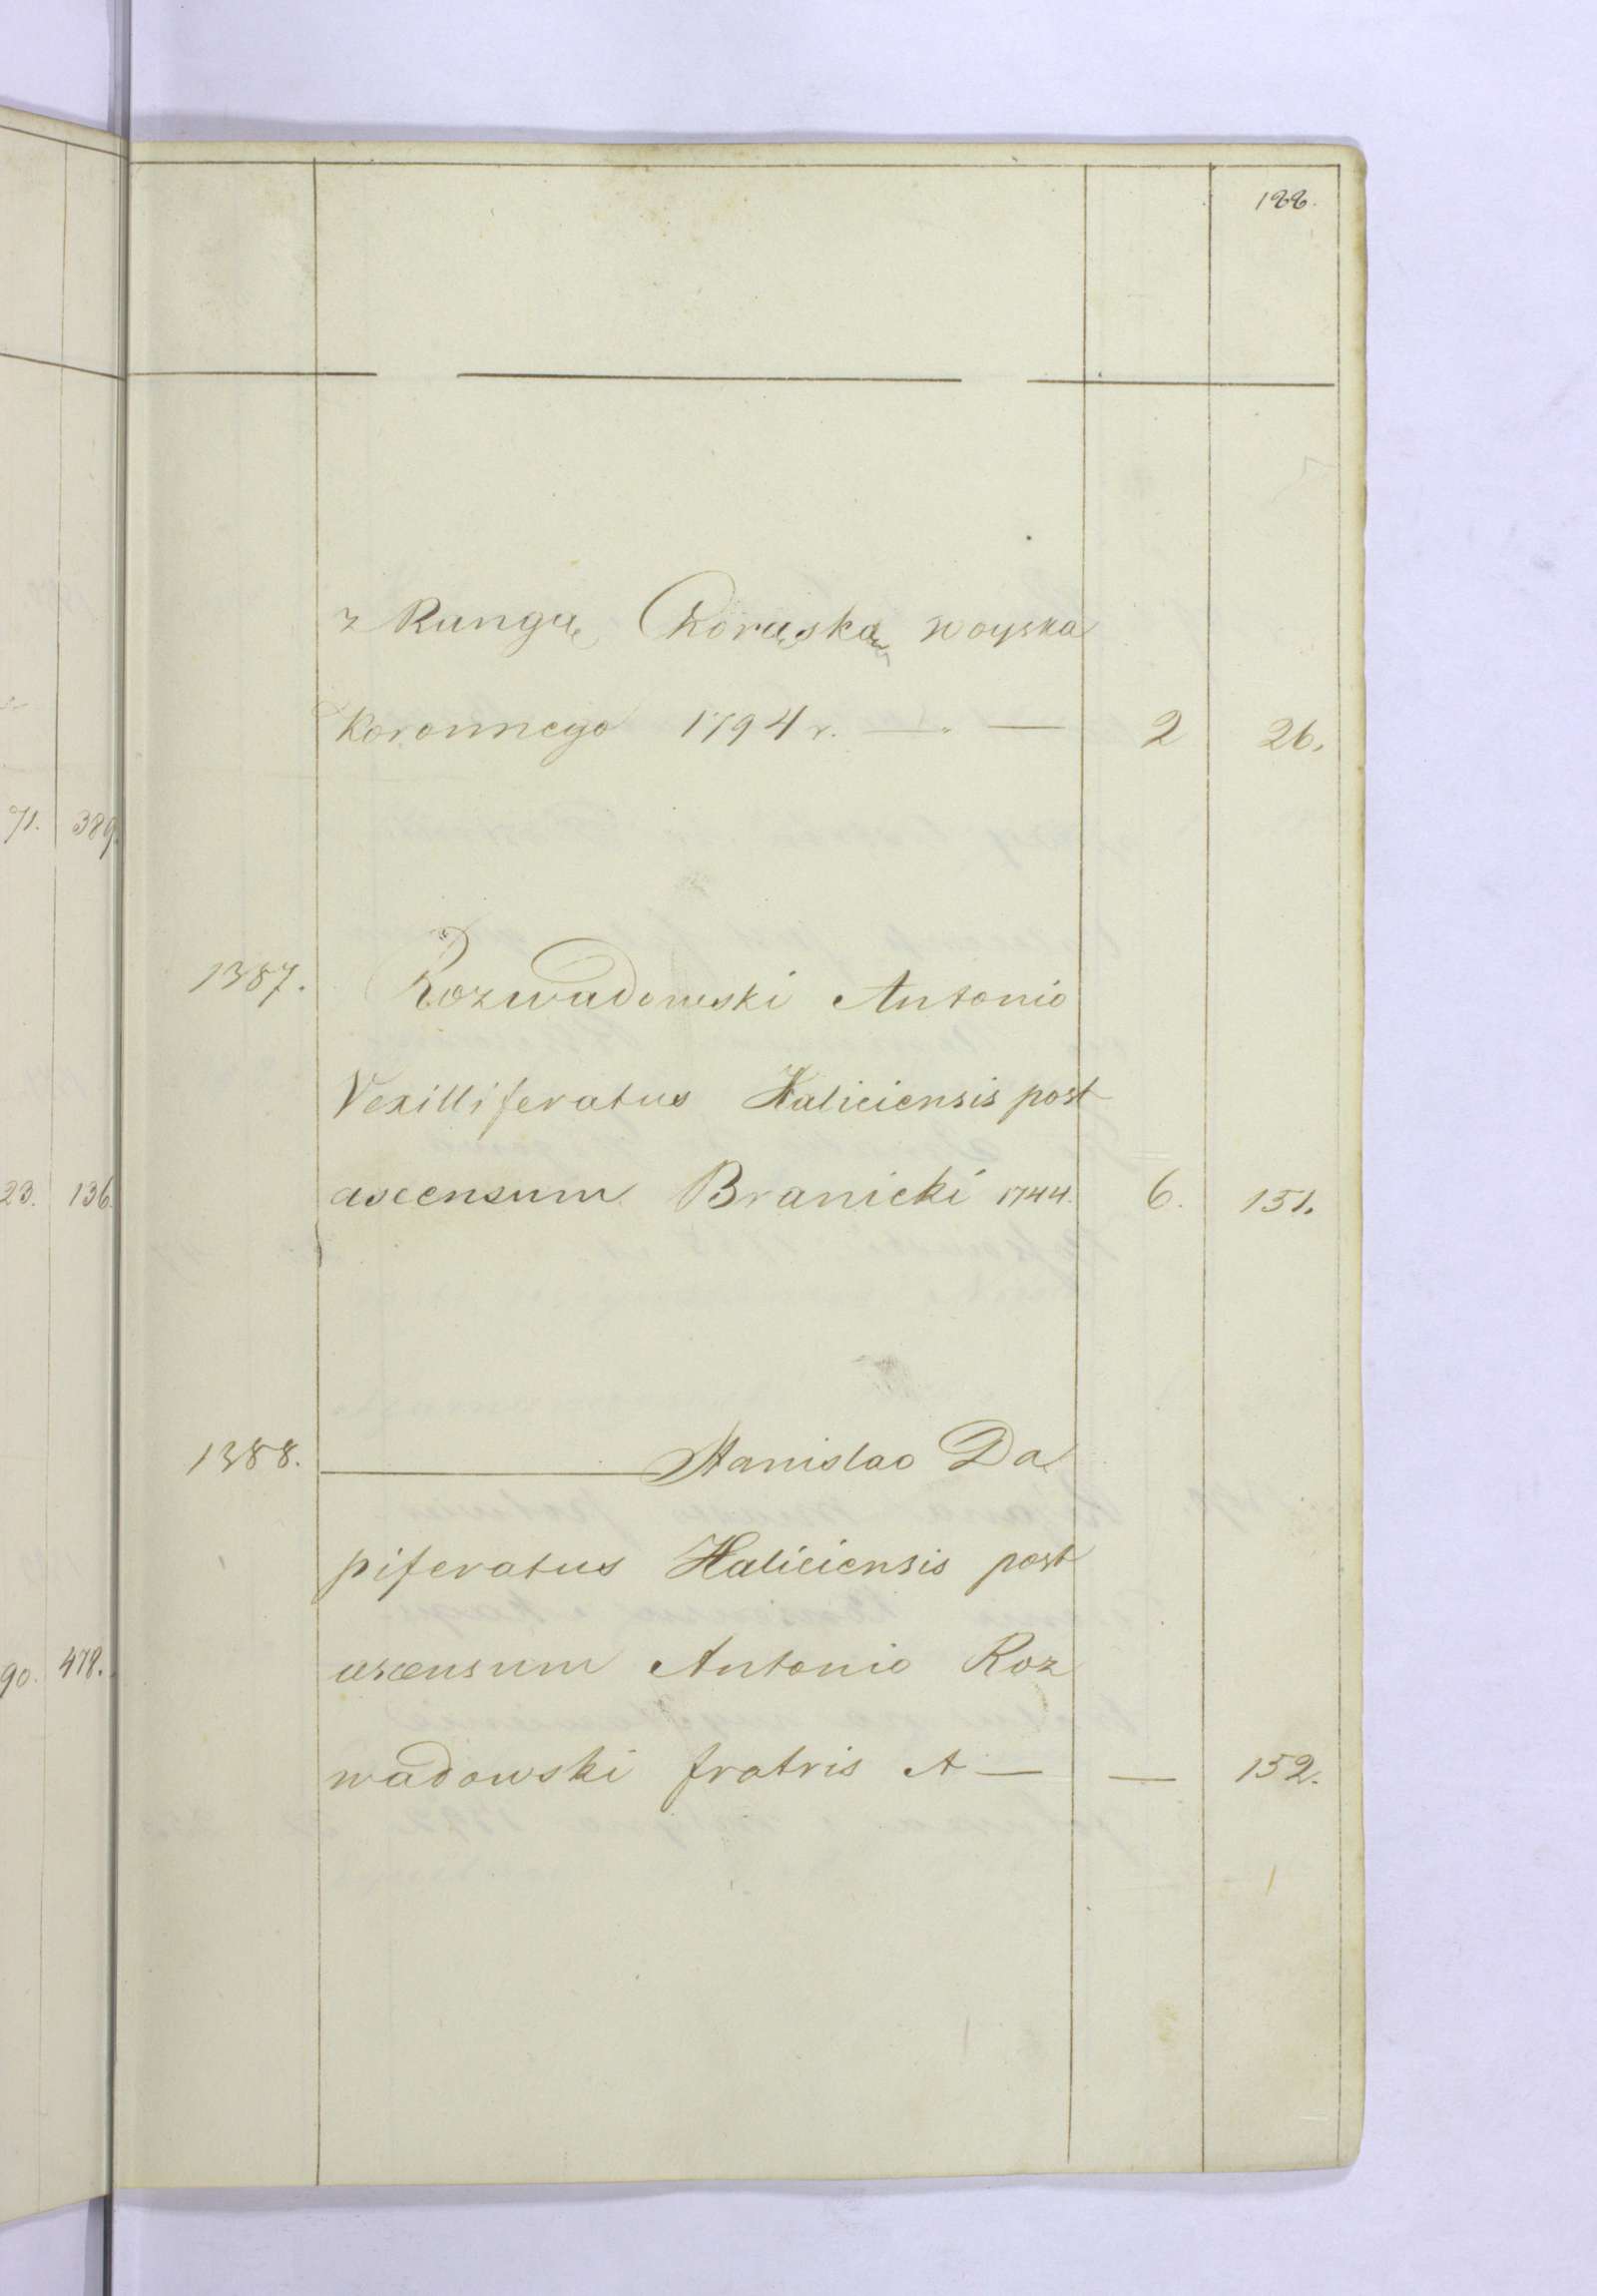 188.
z Rangą Chorąską woyska
Koronnego 1794 r. — . — 2 26.
71. 389.
1387. Rozwadowski Antonio
Vexilliferatus Haliciensis post
23. 136.
ascensum Branicki 1744. 6. 151.
1388. ——— Stanislao Da
piferatus Haliciensis post
90. 478.
ascensum Antonio Roz
wadowski fratris A — — 152.